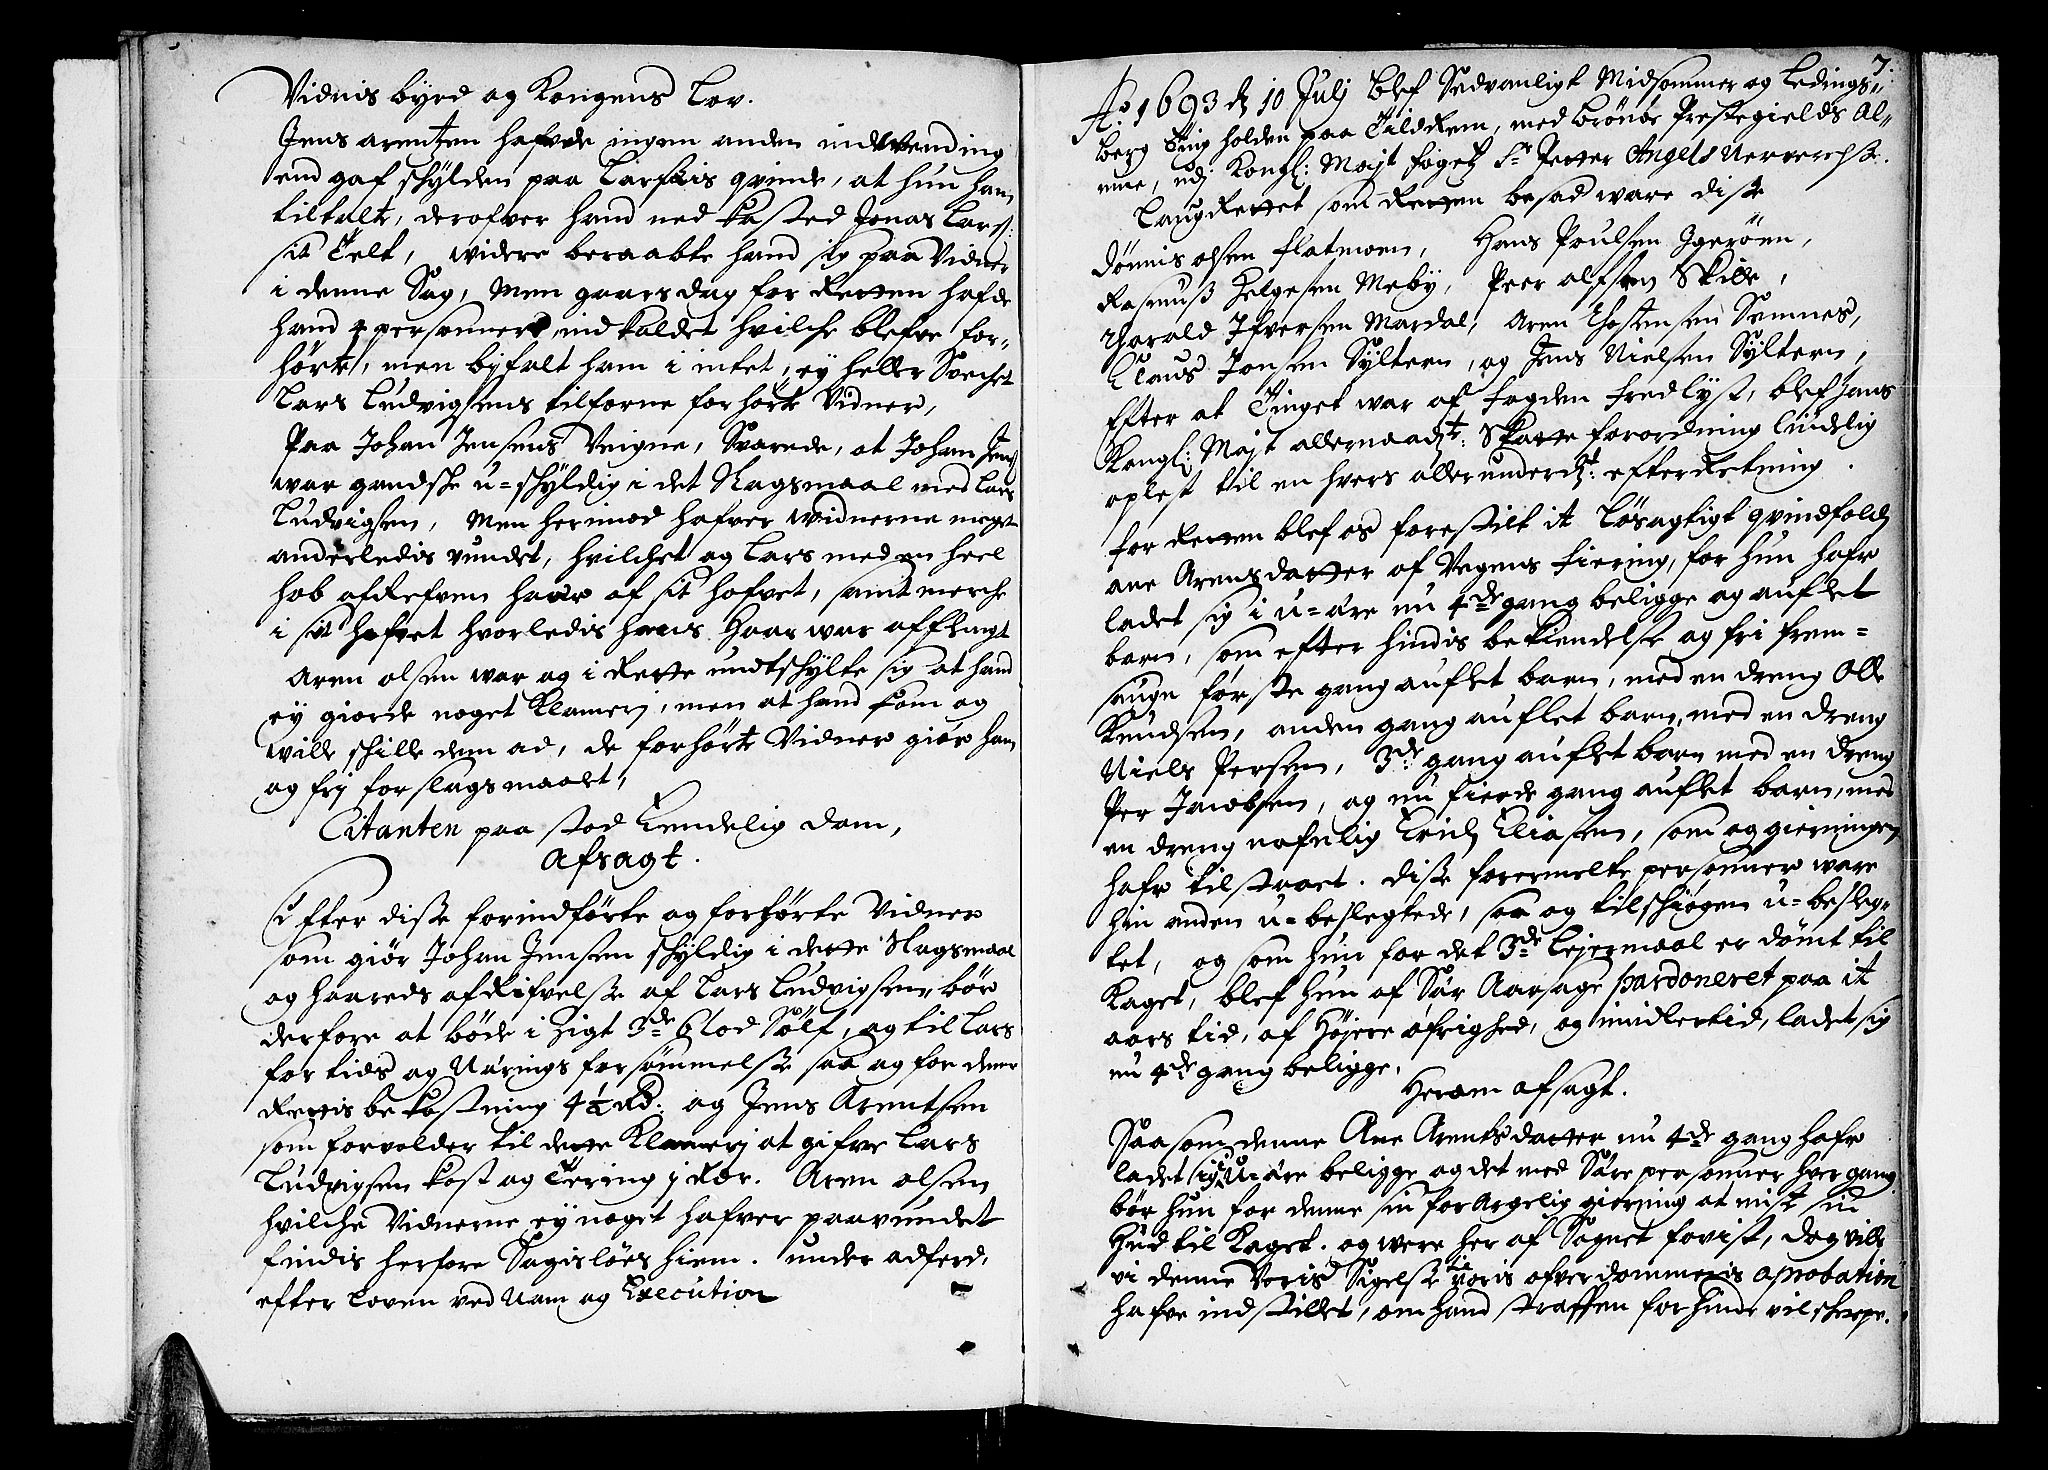 Vidnis byrd og Kongens Lov.
Jens arentzen hafvde ingen anden indwending
end gaf schylden paa Larsis qvinde, at hun ham
tiltalte, derofver hand ned kasted Jonas Lars:
sit Telt, widere beraabte hand sig paa Vidner
i denne Sag, Men gaarsdag for Retten hafde
hand 4 personner ind kaldet hvilche blefve for-
hørte, men byfalt ham i intet, ey heller Svechet
Lars Ludvigsens tilforne forhørte Vidner,
Paa Johan Jensens Veigne, Svarede, at Johan Jens:
war gandsche u-schyldig i det Slagsmaal med Lars
Ludvigsen, Men herimod hafver widnerne meget
anderledis vundet, hvilchet og Lars med en heel
hob afRefven haar af sit hofvet, samt merche
i sit hofvet hvorledis hans Haar war affslugt
Aren olsen war og i Rette undtschylte sig at hand
ey giorde noget Klamerj, men at hand kom og
wille schille dem ad, de forhørte Vidner giør ham
og frj for slagsmaalet,
Citanten paa stod Kendelig dom,
Afsagt.
Efter disse forindførte og forhørte Vidner
som giør Johan Jensen schyldig i dette Slagsmaal
og haareds afRifvelse af Lars Ludvigsen, bør
derfore at bøde i Sigt 3de 6 lod Sølf, og til Lars
for tids og Nærings forsømmelse saa og for denne
Rettis bekostning 4½ Rd: og Jens Arentsen
som forvolder til dette Klamerj at gifve Lars
Ludvigsen kost og tæring j Rdr. Aren olsen
hvilche Vidnerne ey noget hafver paavundet
findis herfore Sagisløes hiem. under adferd,
efter Loven ved Nam og Execution
7.
Ao 1693 d 10 Julj blef Sedvanligt Midsommer og Ledings-
berg ting holden paa Tilddem, med Brønøe Prestegields Al-
mue, udj Kongl: Mayt foget Sr Petter Angels Nerverelse.
LaugRettet som Retten besad ware disse
Dønnis olsen flatmoen, Hans Poulsen Ygerøen,
Rasmuss Helgesen Meby, Peer alfsen Skille,
Harald Ifversen Mardal, Aren Thostensen Semnes,
Claus Jonsen Syltern, og Jens Nielsen Syltern,
Efter at Tinget war af fogden fredlyst, blef hans
Kongl: Mayt allernaadte: Skatte forordning lydelig
oplest til en hvers allerunderdt: efterRetning.
for Retten blef os forestilt it Løsagtigt qvindfolch
ane Arensdatter af Vegens fiering, for hun hafr
ladet sig i u-ære nu 4de gang beligge og auflet
barn, som efter hindis bekiendelse og fri frem-
sauge første gang auflet barn, med en dreng Olle
Knudsen, anden gang auflet barn, med en dreng
Niels Persen, 3de gang auflet barn med en dreng
Per Jacobsen, og nu fierde gang auflet barn, med
en dreng nafnlig Erich Eliasen, som og gierningen
hafr tilstaaet. disse forermelte personner ware
hin anden u-beslegtede, saa og tilschiøgen u-besleg-
tet, og som hun for det 3de Leyermaal er dømt til
Kaget, blef hun af Sær Aarsage pardoneret paa it
aars tid, af Høyere øfrighed, og imidlertid, ladet sig
nu 4de gang beligge,
Herom afsagt.
Saasom denne Ane Arentsdatter nu 4de gang hafr
ladet sig i U-ære beligge og det med Sære personner hver gang
bør hun for denne sin forArgelig gierning at miste sin
Hud til Kaget. og were her af Sognet forvist, dog ville
vi denne Voris Sigelse til voris ofverdommeris aprobation
hafve indstillet, om hand straffen for hinde vil scherpe.